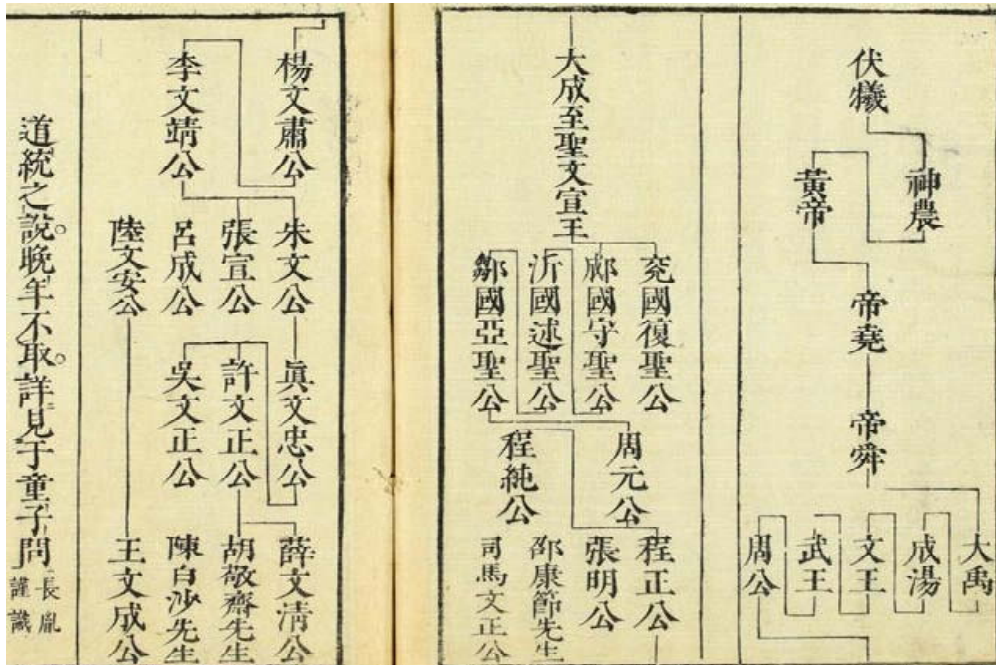 伏犧
神農
黃帝
帝堯
帝舜
大禹
成湯
文王
武王
周公
大成至聖文宣王
兗國復聖公
郕國守聖公
沂國述聖公
鄒國亞聖公
周元公
程純公
程正公
張明公
邵康節先生
司馬文正公
楊文肅公
李文靖公
朱文公
張宣公
呂成公
陸文安公
眞文忠公
許文正公
吳文正公
薛文清公
胡敬齋先生
陳白沙先生
王文成公
道統之說。晚年不取。詳見于童子問
長胤
謹識